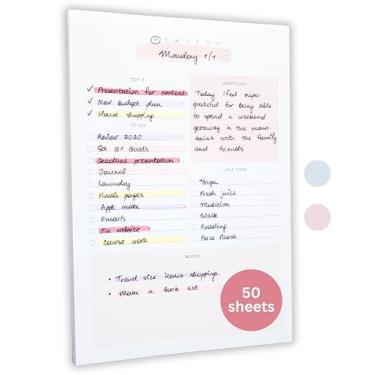 M T W T F S S
Monday 1/1
TOP 3
Presentation for content
New budget plan
House shopping
TO DO
Review 2020
Set Q1 Goals
Deadline presentation
Journal
Laundry
Finish pages
Appt make
Emails
Fix website
Course work
GRATITUDE
Today I feel super
grateful for being able
to spend a weekend
getaway in the moun
tains with the family
and friends
SELF CARE
Yoga
Fresh juice
Meditation
Walk
Reading
Face Mask
NOTES
• Travel size items shopping.
• Make a book list
50
sheets